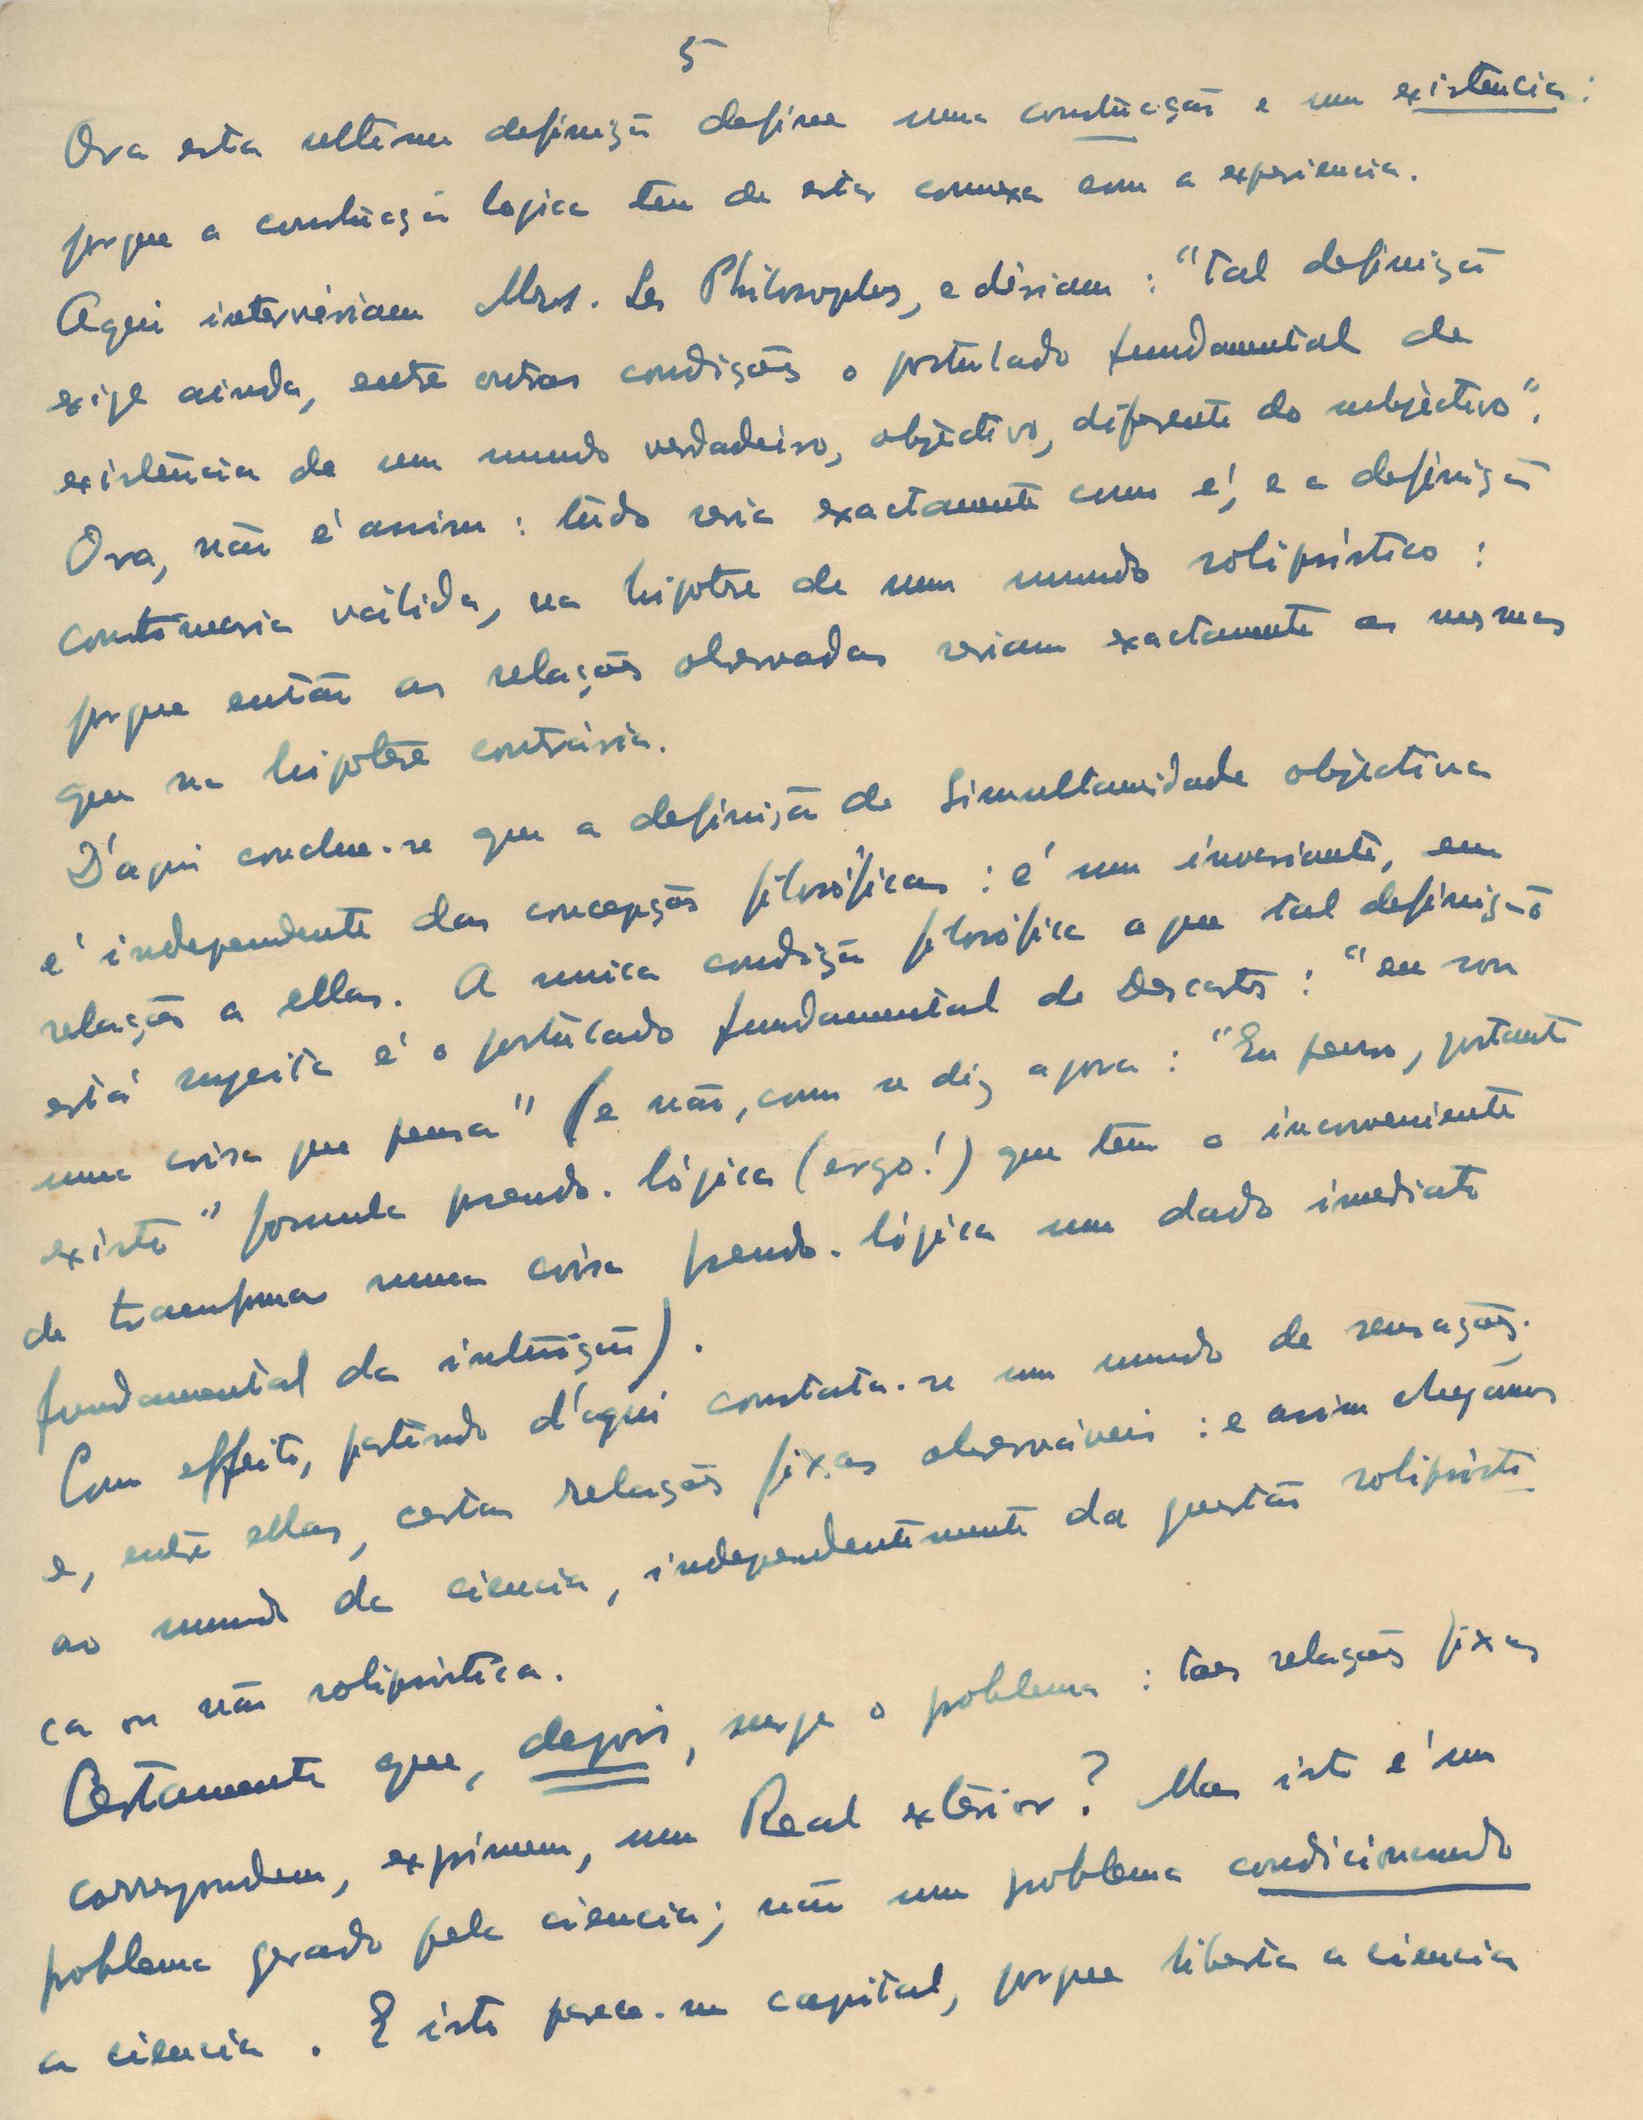 5
Ora esta ultima definição define uma construcção e um existencia:
porque a construcção logica tem de estar connexa com a experiencia.
Aqui interviriam Mrs. Les Philosophes, e diriam: "Tal definição
exige ainda, entre outras condições o postulado fundamental de
existência de um mundo verdadeiro, objectivo, diferente do subjectivo".
Ora, não é assim: tudo seria exactamente como é, e a definição
continuaria válida, na hipotse de um mundo solipsistico:
porque então as relações observadas seriam exactamente as mesmas
que na hipotese contrária.
D'aqui conclue-se que a definição de Simultaneidade objectiva
é independente das concepções filosóficas: é um invariante, em
relação a ellas. A unica condição filosófica a que tal definição
está sugeita é o postulado fundamental de Descartes: "eu sou
uma coisa que pensa" (e não, como se diz agora: "Eu penso, portanto
existo" formula pseudo-lógica (ergo!) que tem o inconveniente
de transformar numa coisa pseudo-lógica um dado imediato
fundamental da intuição).
Com effeito, partindo d'aqui constata-se um mundo de sensações;
e, entre ellas, certas relações fixas observáveis: e assim chegámos
ao mundo da ciencia, independentemente da questão solipsisti-
ca ou não solipsistica.
Certamente que, depois, surge o problema: taes relações fixas
correspondem, exprimem, um Real exterior? Mas isto é um
problema gerado pela ciencia; não um problema condicionando
a ciencia. E isto parece-me capital, porque liberta a ciencia